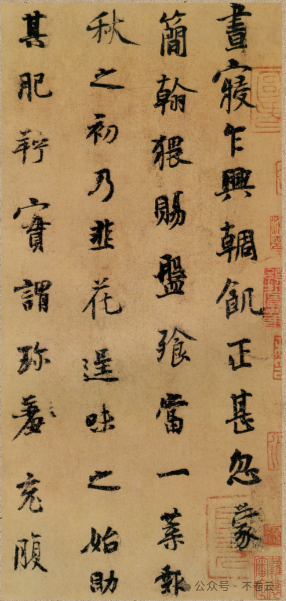 晝寢乍興輖飢正甚忽蒙
簡翰猥賜盤飧當一葉報
秋之初乃韭花逞味之始助
其肥羜實謂珍羞充腹
公众号 · 不看云